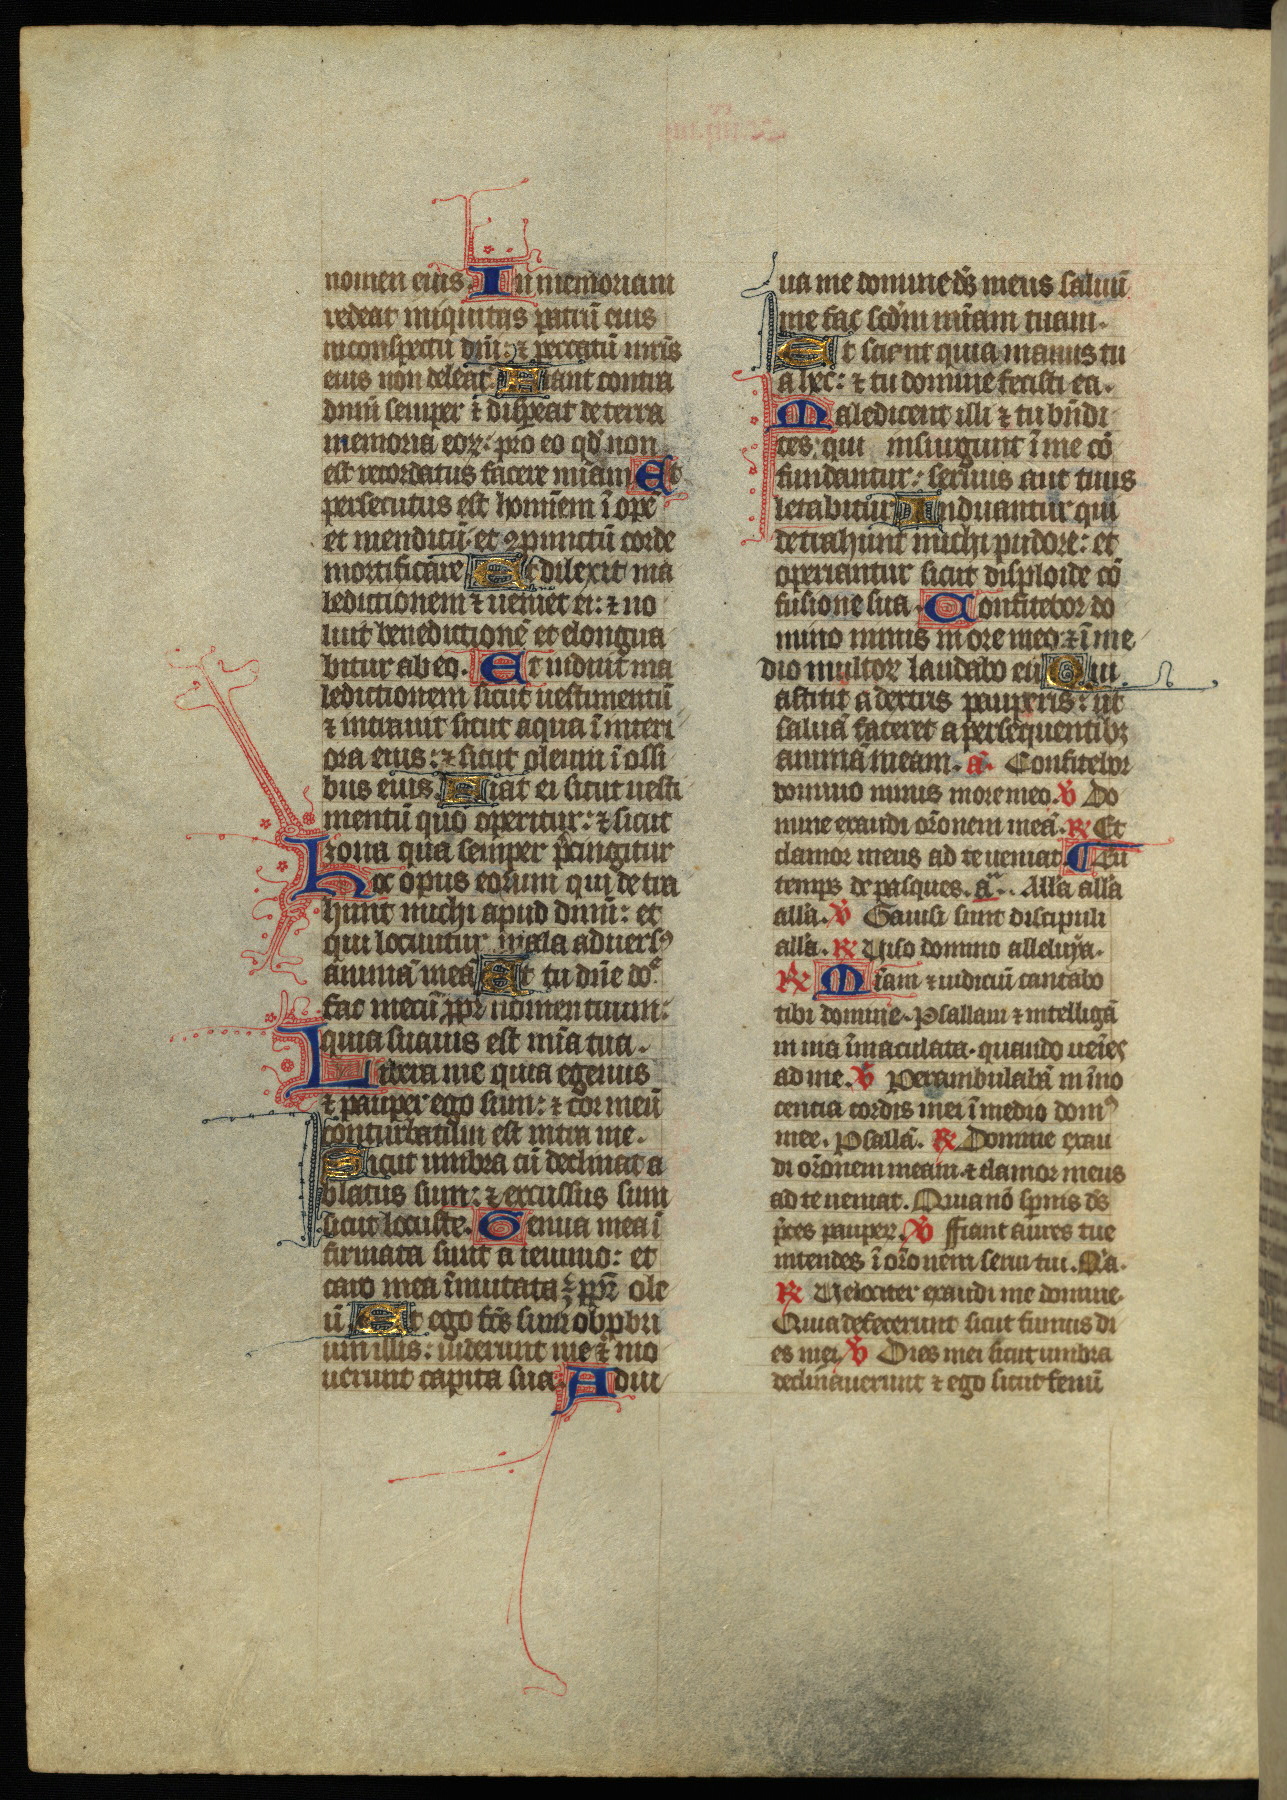 nomen eius. In memoriam
redeat iniquitas patrū eius
in conspectu dn̄i: ⁊ peccatū mr̄is
eius non deleat. Fiant contra
dnm̄ semper ⁊ disp̄eat de terra
memoria eoꝝ: pro eo qđ non
est recordatus facere mīam Et
persecutus est homīem īopē
et mendicū: et ꝯpunctū corde
mortificare Et dilexit ma
ledictionem ⁊ ueniet ei: ⁊ no
luit benedictionē et elongua
bitur ab eo. Et induit ma
ledictionem sicut uestimentū
⁊ intrauit sicut aqua ī interi
ora eius: ⁊ sicut oleum ī ossi
bus eius. Fiat ei sicut uesti
mentū quo operitur: ⁊ sicut
zona qua semper p̄cingitur
Hoc opus eorum qui detra
hunt michi apud dnm̄: et
qui locuntur mala aduersꝰ
animā meā Et tu dn̄e do
fac mecū ꝓpt̄ nomen tuum:
quia suauis est mīa tua.
Libera me quia egenus
⁊ pauper ego sum: ⁊ cor meū
conturbatum est intra me.
Sicut umbra cū declinat a
blatus sum: ⁊ excussus sum
sicut locuste. Genua mea ī
firmata sunt a ieiunio: et
caro mea īmutata ē ꝓpt̄ ole
ū Et ego fc̄s sum obpbri
um illis: uiderunt me ⁊ mo
uerunt capita sua: Adiu
ua me domine dš meus saluū
me fac scđm mīam tuam.
Et scient quia manus tu
a hec: ⁊ tu domine fecisti ea.
Maledicent illi ⁊ tu bn̄di
ces: qui insurgunt ī me cō
fundantur: seruus aut̄ tuus
letabitur Induantur qui
detrahunt michi pudore: et
operiantur sicut disploide cō
fusione sua. Confitebor do
mino nimis in ore meo: ⁊ ī me
dio multoꝝ laudabo eū Qui
astitit a dextris pauperis: ut
saluā faceret a persequentibꝫ
animā meam. a. Confitebor
domino nimis in ore meo. ℣ Do
mine exaudi or̄onem meā. ℞ Et
clamor meus ad te ueniat. ¶ Au
temps de pasques. a. All'a all'a
all'a. ℣ Gauisi sunt discipuli
all'a. ℞ Uiso domino alleluya.
℞ Mīam ⁊ iudiciū cantabo
tibi domine. Psallam ⁊ intelligā
in uia īmaculata. quando ueīes
ad me. ℣ Perambulabā in īno
centia cordis mei ī medio domꝰ
mee. Psallā. ℞ Domine exau
di or̄onem meam. ⁊ clamor meus
ad te ueniat. Quia nō spnis dš
p̄ces pauperꝝ. ℣ Fiant aures tue
intendes ī or̄onem serui tui. Q'a.
℞ Uelociter exaudi me domine.
Quia defecerunt sicut fumus di
es mei ℣ Dies mei sicut umbra
declinauerunt ⁊ ego sicut fenū